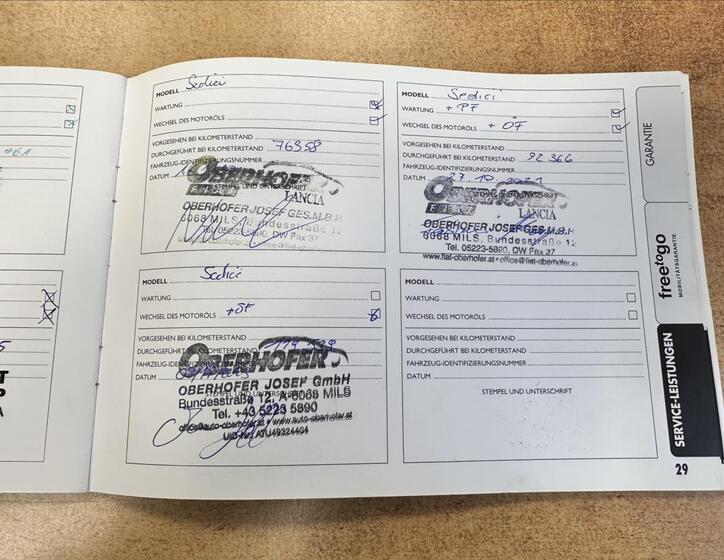 061
MODELL Sedici
WARTUNG
WECHSEL DES MOTORÖLS
VORGESEHEN BEI KILOMETERSTAND
DURCHGEFÜHRT BEI KILOMETERSTAND 76958
FAHRZEUG-IDENTIFIZIERUNGSNUMMER
DATUM
STEMPEL UND UNTERSCHRIFT
OBERHOFER
FIAT LANCIA
OBERHOFER JOSEF GES.M.B.H.
6068 MILS, Bundesstraße 12
Tel. 05223-5890, DW Fax 37
MODELL Sedici
WARTUNG + PF
WECHSEL DES MOTORÖLS + ÖF
VORGESEHEN BEI KILOMETERSTAND
DURCHGEFÜHRT BEI KILOMETERSTAND 92 366
FAHRZEUG-IDENTIFIZIERUNGSNUMMER
DATUM 27.10.2021
OBERHOFER
LANCIA
OBERHOFER JOSEF GES.M.B.H.
6068 MILS, Bundesstraße 12
Tel. 05223-5890, DW Fax 37
www.fiat-oberhofer.at • office@fiat-oberhofer.at
MODELL Sedici
WARTUNG
WECHSEL DES MOTORÖLS + ÖF
VORGESEHEN BEI KILOMETERSTAND
DURCHGEFÜHRT BEI KILOMETERSTAND
DATUM
OBERHOFER
OBERHOFER JOSEF GmbH
Bundesstraße 12, A-6068 MILS
Tel. +43 5223 5890
office@auto-oberhofer.at • www.auto-oberhofer.at
MODELL
WARTUNG
WECHSEL DES MOTORÖLS
VORGESEHEN BEI KILOMETERSTAND
DURCHGEFÜHRT BEI KILOMETERSTAND
FAHRZEUG-IDENTIFIZIERUNGSNUMMER
DATUM
STEMPEL UND UNTERSCHRIFT
GARANTIE
free to go
MOBILITÄTSGARANTIE
SERVICE-LEISTUNGEN
29